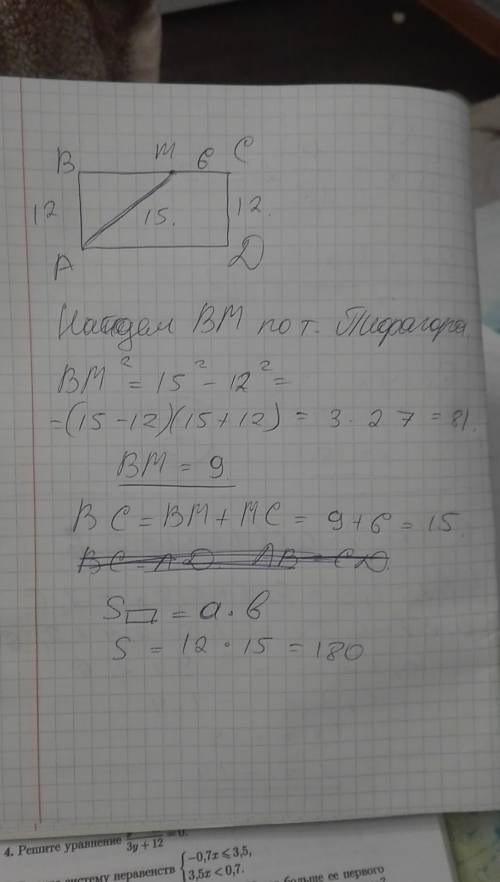 B M 6 C
12 15. 12.
A D
Найдем BM по т. Пифагора
BM² = 15² - 12² =
=(15-12)(15+12) = 3 · 27 = 81.
BM = 9
BC = BM + MC = 9 + 6 = 15.
BC = AD AB = CD.
S▭ = a · b
S = 12 · 15 = 180
4. Решите уравнение 3y + 12 = 0.
систему неравенств { -0,7x ⩽ 3,5,
3,5x < 0,7.
больше ее первого